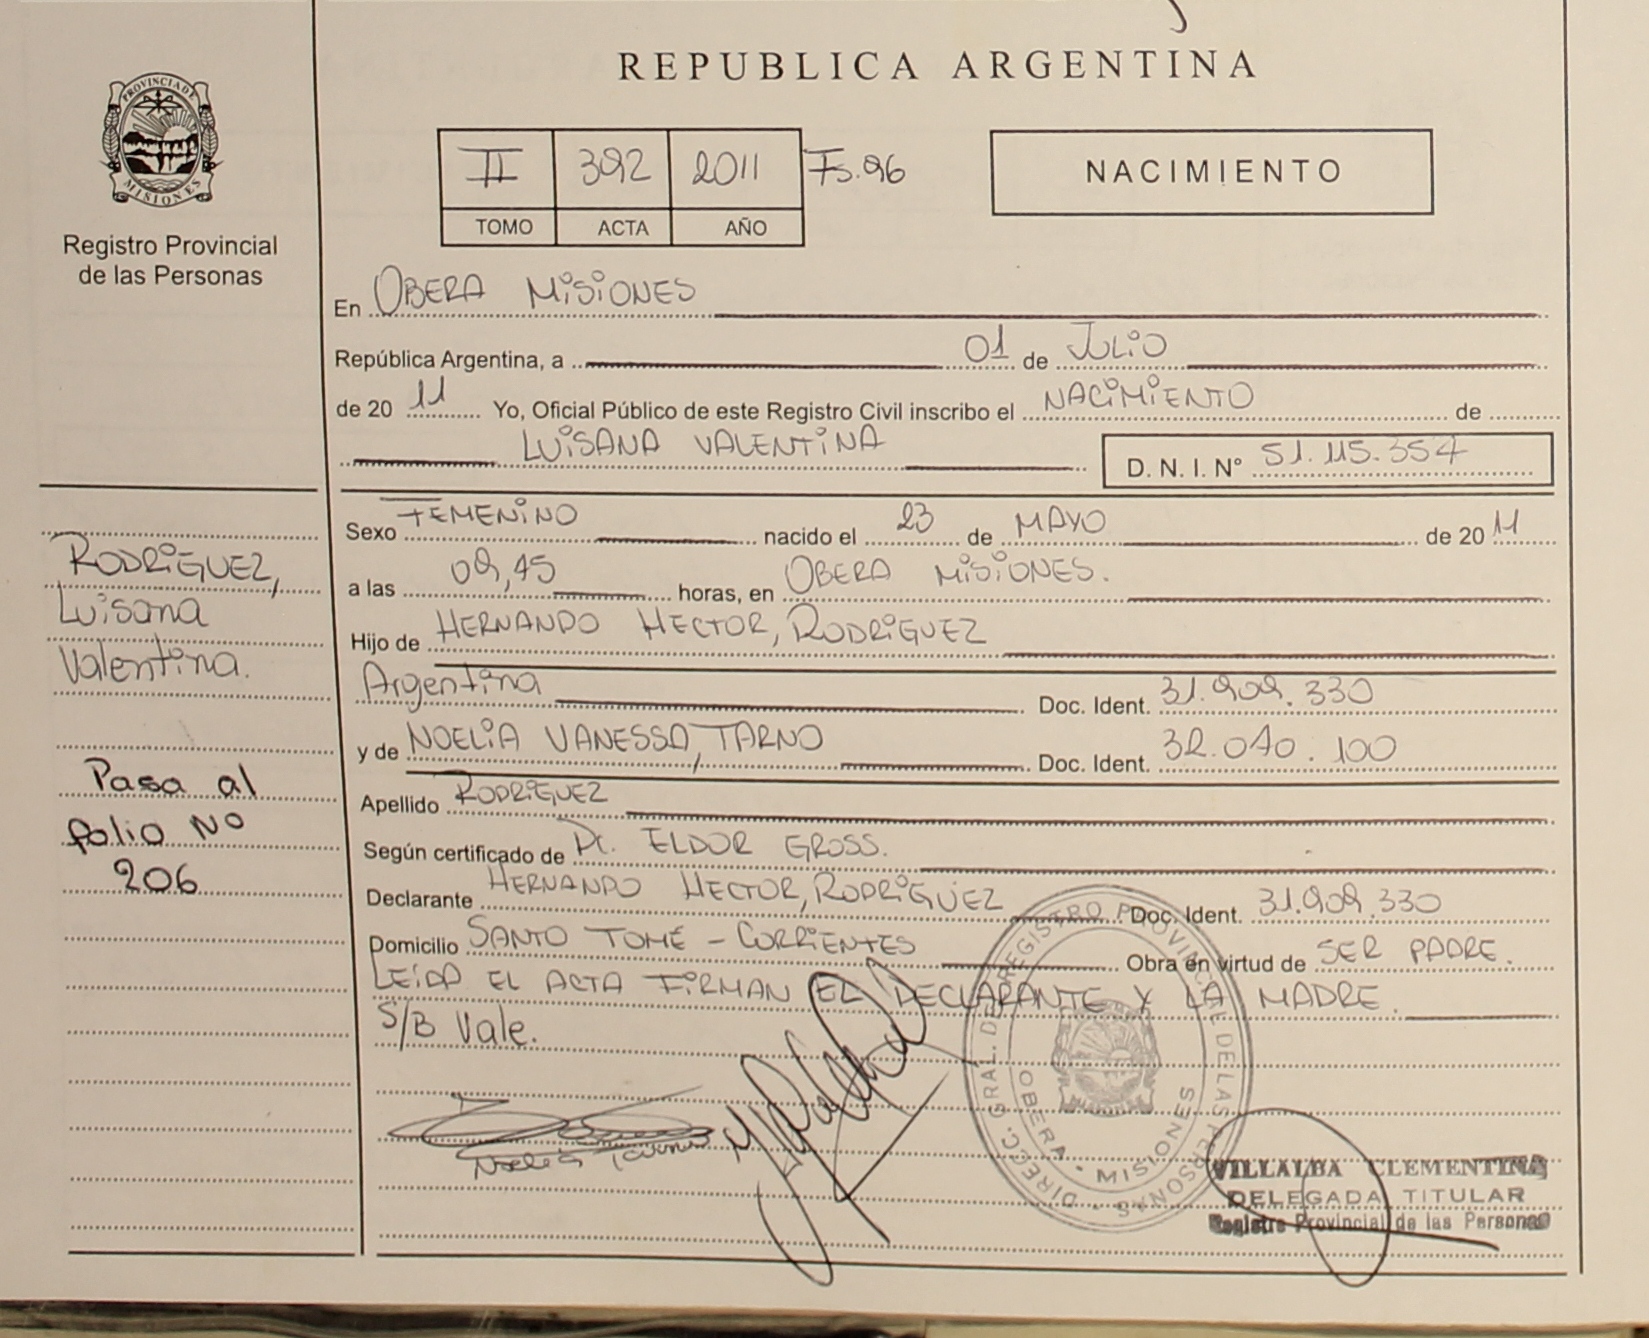 REPUBLICA ARGENTINA
PROVINCIA DE MISIONES
Registro Provincial
de las Personas
II 392 2011 Fs.96
TOMO ACTA AÑO
NACIMIENTO
En OBERA MISIONES
República Argentina, a 01 de JULIO
de 20 11 Yo, Oficial Público de este Registro Civil inscribo el NACIMIENTO de
LUISANA VALENTINA D. N. I. N° 51.115.357
Sexo FEMENINO nacido el 23 de MAYO de 20 11
a las 09,45 horas, en OBERA MISIONES.
Hijo de HERNANDO HECTOR, RODRIGUEZ
Argentina Doc. Ident. 31.909.330
y de NOELIA VANESSA, TARNO Doc. Ident. 32.040.100
Apellido RODRIGUEZ
Según certificado de Dr. ELDOR GROSS.
Declarante HERNANDO HECTOR, RODRIGUEZ Doc. Ident. 31.909.330
Domicilio SANTO TOMÉ - CORRIENTES Obra en virtud de SER PADRE.
LEIDA EL ACTA FIRMAN EL DECLARANTE Y LA MADRE.
S/B Vale.
RODRIGUEZ,
Luisana
Valentina.
Pasa al
folio Nº
206
Noelia
DIRECC. GRAL. DE REGISTRO PROVINCIAL DE LAS PERSONAS
OBERA - MISIONES
VILLALBA CLEMENTINA
DELEGADA TITULAR
Registro Provincial de las Personas